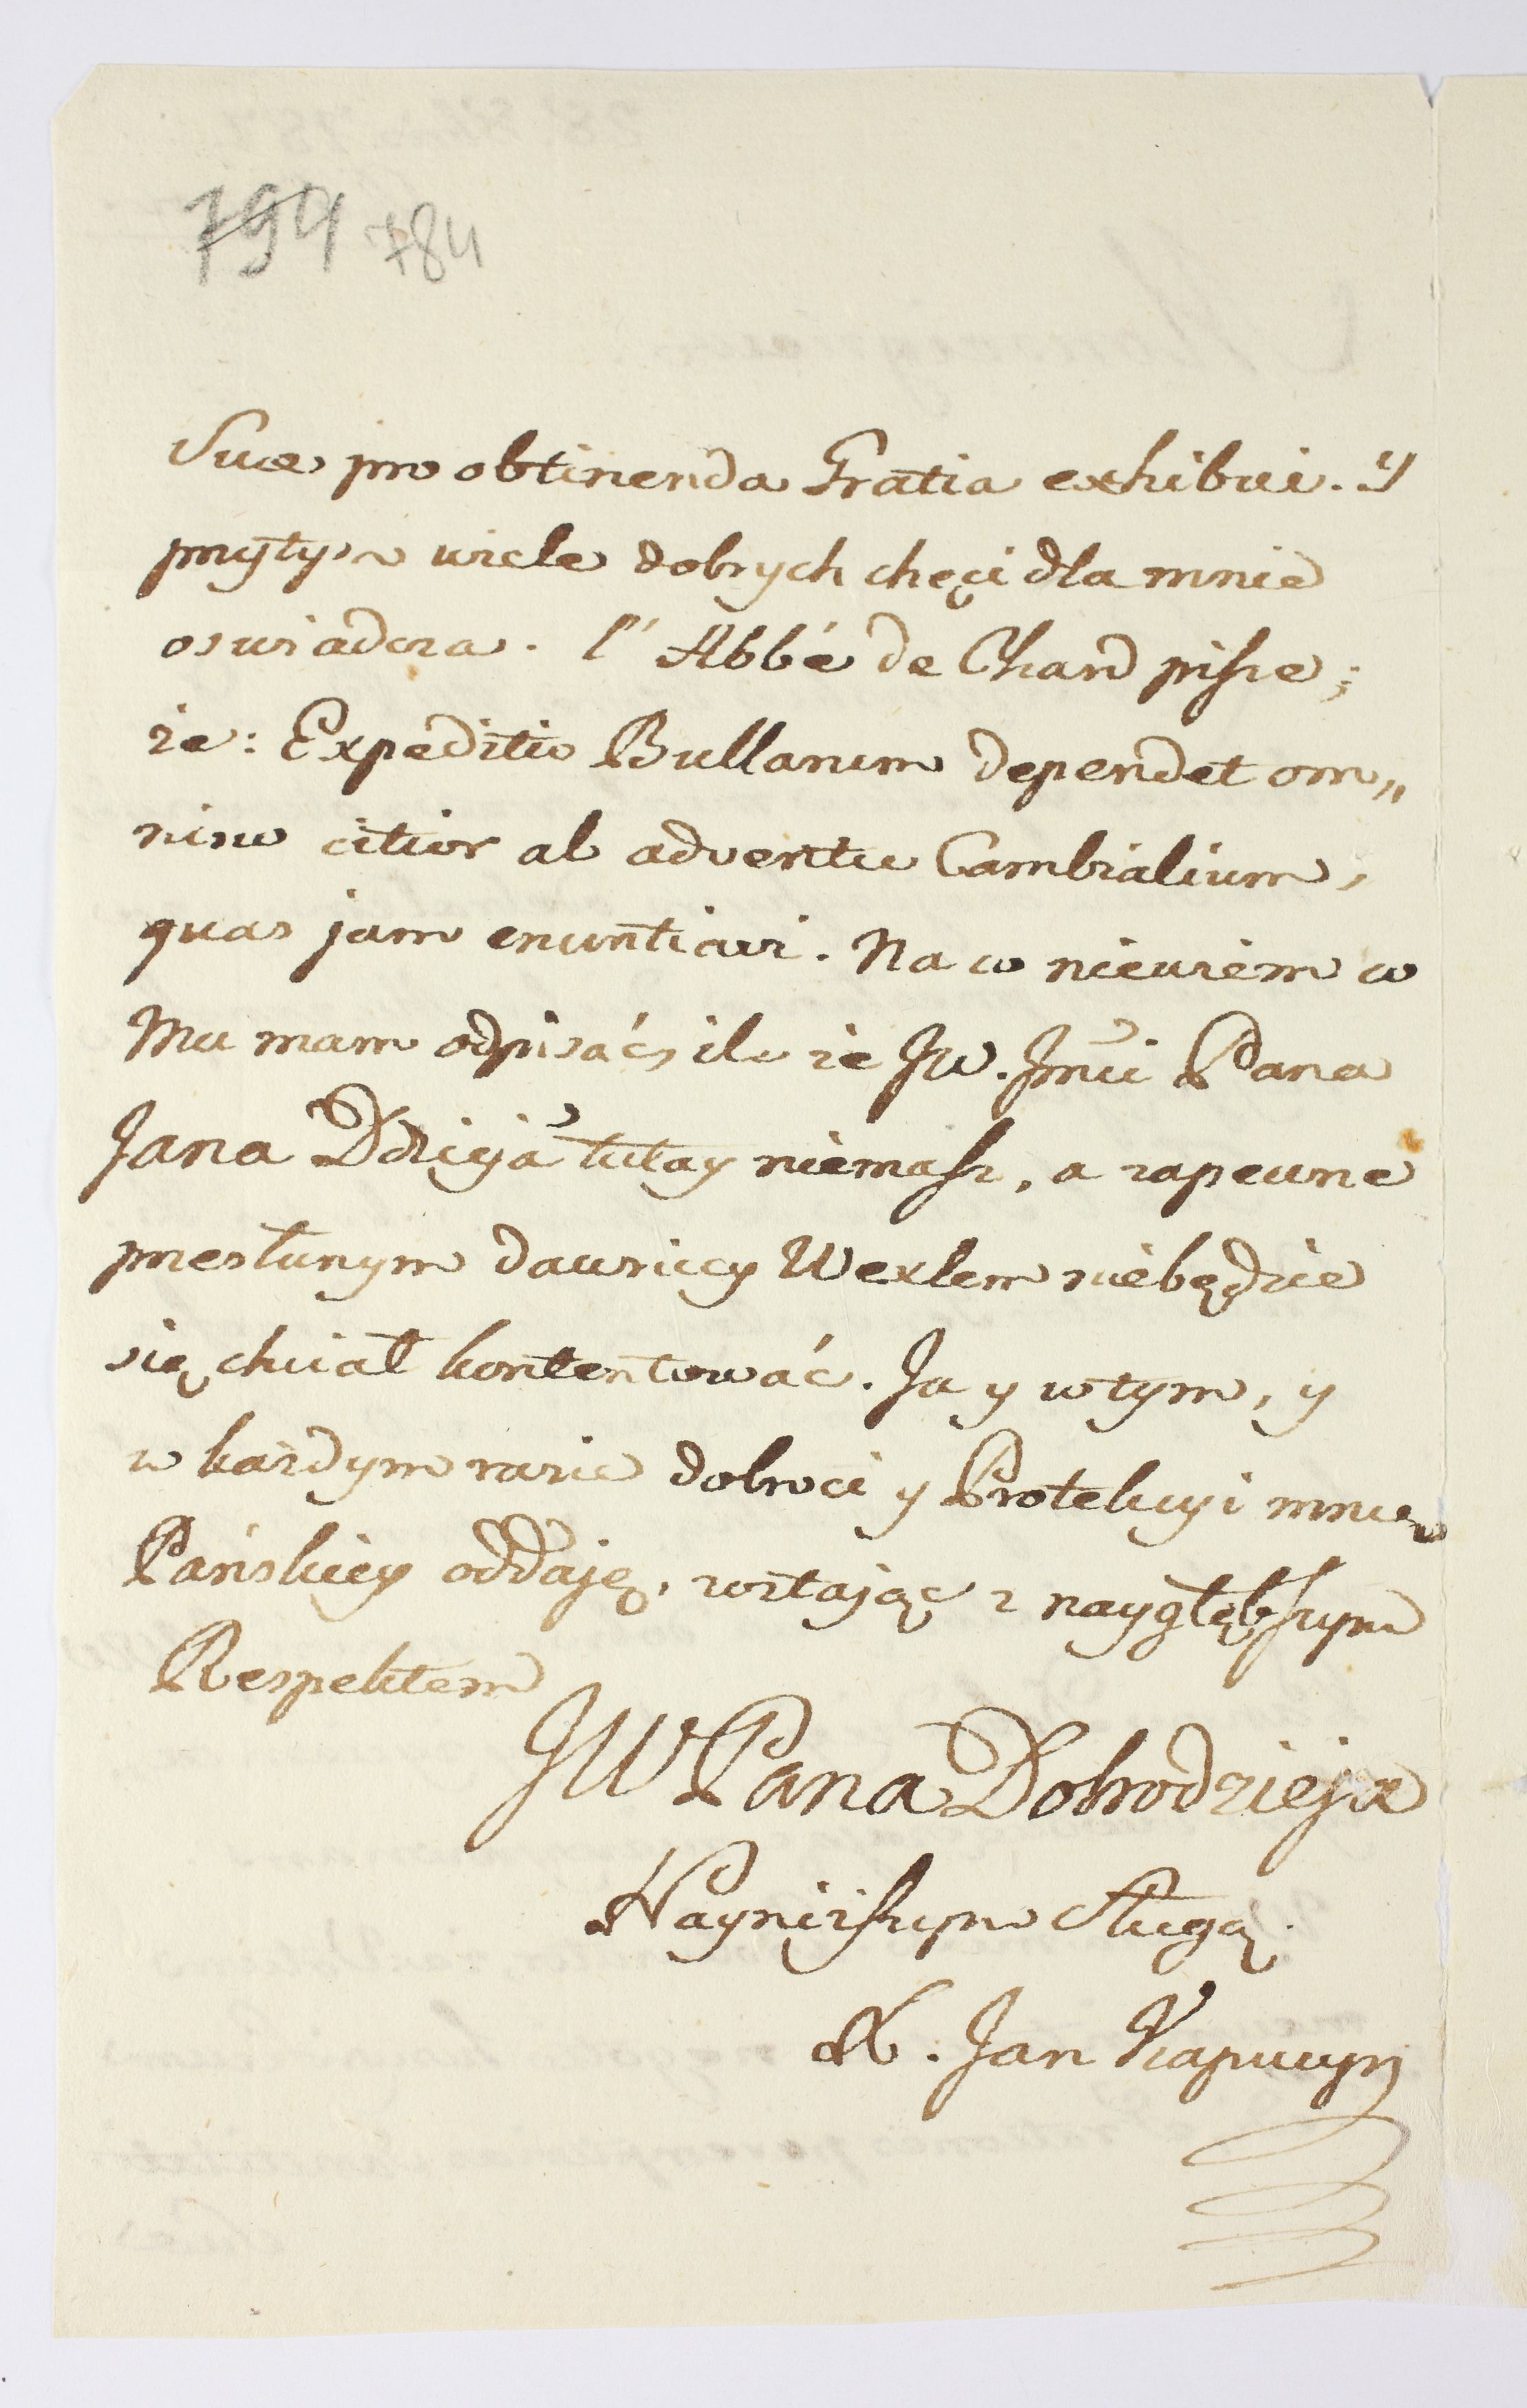 794 784
Suae pro obtinenda Gratia exhibui. Y
przytym wiele dobrych chęci dla mnie
oswiadcza. l'Abbé de Chard pisze;
ze: Expeditio Bullarum dependet om„
nino citior ab adventu Cambialium,
quas jam enuntiavi. Na co niewiem co
Mu mam odpisać, ile ze JW. Jmci Pana
Jana tutay niemasz, a zapewne
przesłanym dawniey Wexlem niebędzie
się chciał kontentować. Ja y w tym, y
w kazdym razie dobroci y Protekcyi mnie
Pańskiey oddaję, zostając z naygłębszym
Respektem
JW Pana Dobrodzieja
Nayniższym Sługą.
X. Jan Kapucyn